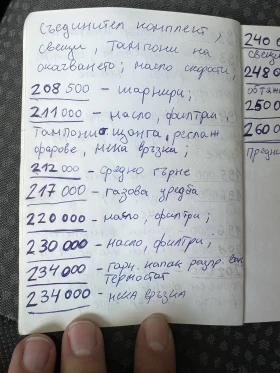 Съединител комплект,
свещи, тампони на
окачването; масло скорости;
208 500 - шарнири;
211 000 - масло, филтри;
Тампони щанга, реглаж
фарове, мека връзка;
212 000 - средно гърне
217 000 - газова уредба
220 000 - масло, филтри;
230 000 - масло, филтри;
234 000 - гарн. капак разпр. вал
термостат
234 000 - мека връзка
240 0
свещи
248 0
250 00
260 00